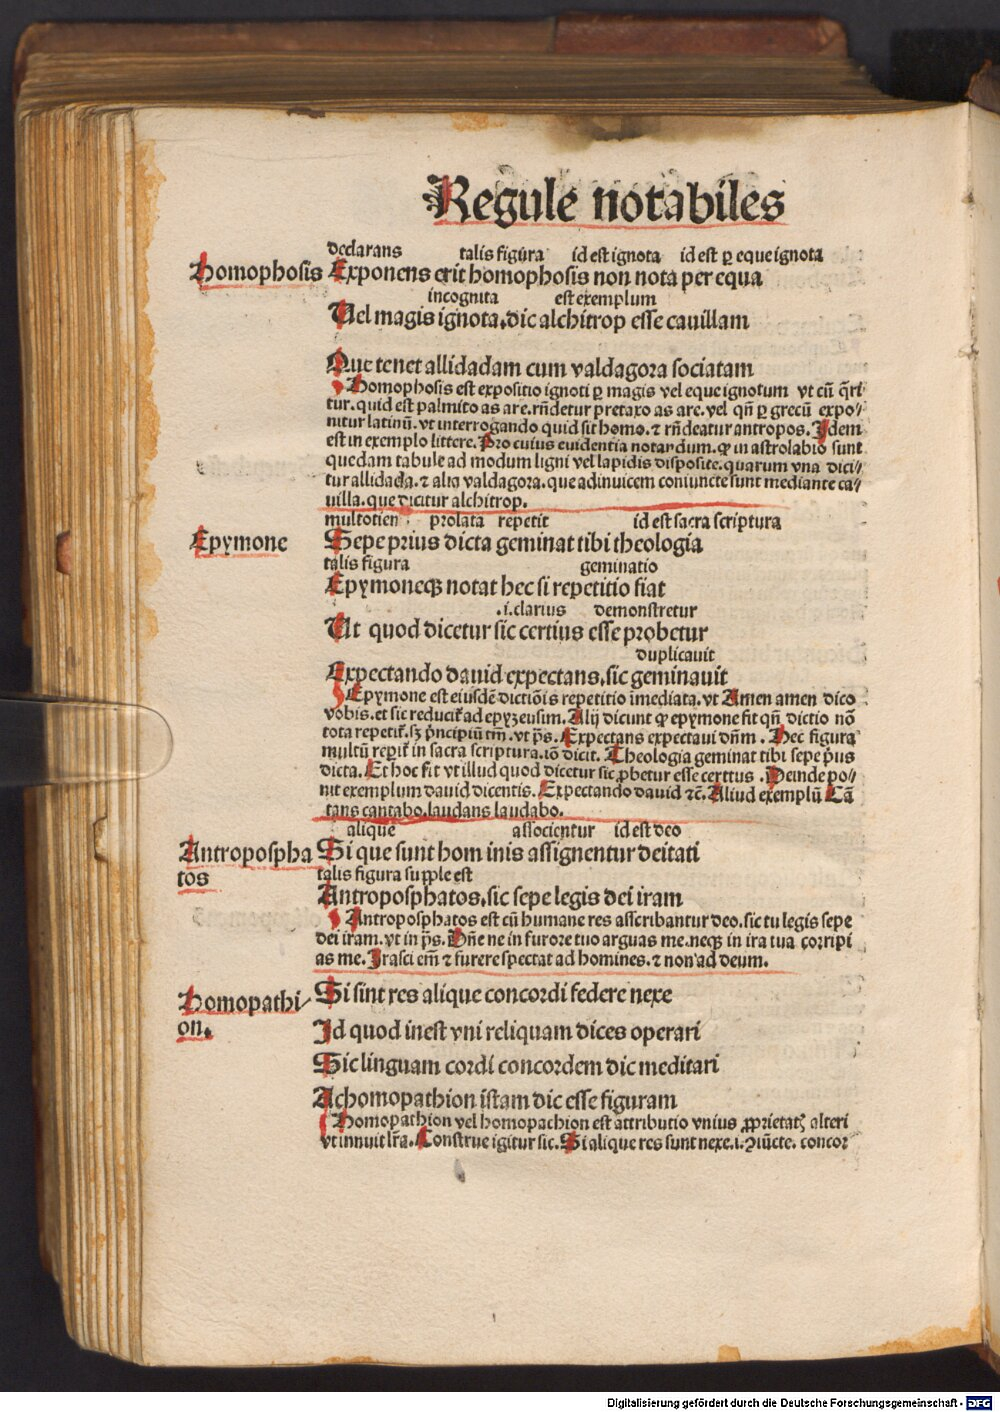 Regule notabiles
declarans talis figura id est ignota id est ꝑ eque ignota
Homophosis Exponens erit homophosis non nota per equa
incognita est exemplum
Uel magis ignota. dic alchitrop esse cauillam
Que tenet allidadam cum valdagora sociatam
Homophosis est expositio ignoti ꝑ magis vel eque ignotum vt cū q̄ri
tur. quid est palmito as are. rn̄detur pretaxo as are. vel qn̄ ꝑ grecū expo⸗
nitur latinū. vt interrogando quid sit homo. ⁊ rn̄deatur antropos. Idem
est in exemplo littere. Pro cuius euidentia notandum. ꝙ in astrolabio sunt
quedam tabule ad modum ligni vel lapidis disposite. quarum vna dici⸗
tur allidada. ⁊ alia valdagora. que adinuicem coniuncte sunt mediante ca⸗
uilla. que dicitur alchitrop.
multotien prolata repetit id est sacra scriptura
Epymone Sepe prius dicta geminat tibi theologia
talis figura geminatio
Epymoneqꝫ notat hec si repetitio fiat
.i. clarius demonstretur
Ut quod dicetur sic certius esse probetur
duplicauit
Expectando dauid expectans. sic geminauit
Epymone est eiusdē dictiōis repetitio īmediata. vt Amen amen dico
vobis. et sic reducit᷑ ad epyzeusim. Alij dicunt ꝙ epymone fit qn̄ dictio nō
tota repetit᷑. sꝫ p̄ncipiū tm̄. vt p̄s. Expectans expectaui dn̄m. Hec figura
multū reꝑit᷑ in sacra scriptura. iō dicit. Theologia geminat tibi sepe p̄us
dicta. Et hoc fit vt illud quod dicetur sic ꝓbetur esse certius. Deinde po⸗
nit exemplum dauid dicentis. Expectando dauid ⁊c̄. Aliud exemplū Cā
tans cantabo. laudans laudabo.
alique associentur id est deo
Antropospha Si que sunt hominis assignentur deitati
tos talis figura supple est
Antroposphatos. sic sepe legis dei iram
Antroposphatos est cū humane res ascribantur deo. sic tu legis sepe
dei iram. vt in p̄s. Dn̄e ne in furore tuo arguas me. neqꝫ in ira tua corripi
as me. Irasci em̄ ⁊ furere spectat ad homines. ⁊ non ad deum.
Homopathi⸗ Si sint res alique concordi federe nexe
on. Id quod inest vni reliquam dices operari
Sic linguam cordi concordem dic meditari
Ac homopathion istam dic esse figuram
Homopathion vel homopachion est attributio vnius ꝓprietatꝭ alteri
vt innuit lr̄a. Construe igitur sic. Si alique res sunt nexe .i. ꝯiūcte. concor
Digitalisierung gefördert durch die Deutsche Forschungsgemeinschaft - DFG